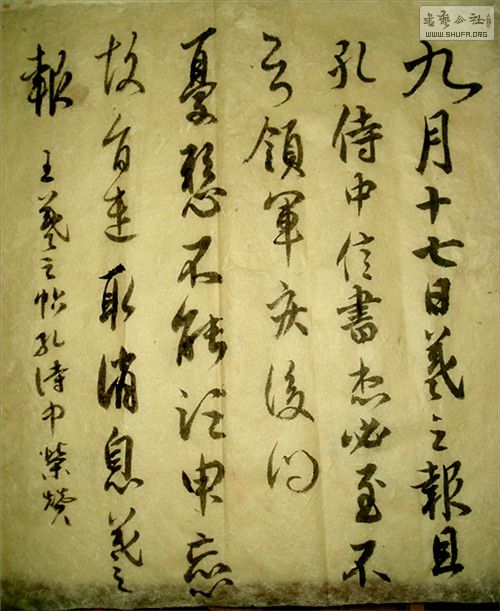 九月十七日羲之報且
孔侍中信書想必至不
知領軍疾後問
憂懸不能須臾忘心
故旨遣取消息羲之
報
王羲之帖孔侍中榮
書藝公社
WWW.SHUFA.ORG